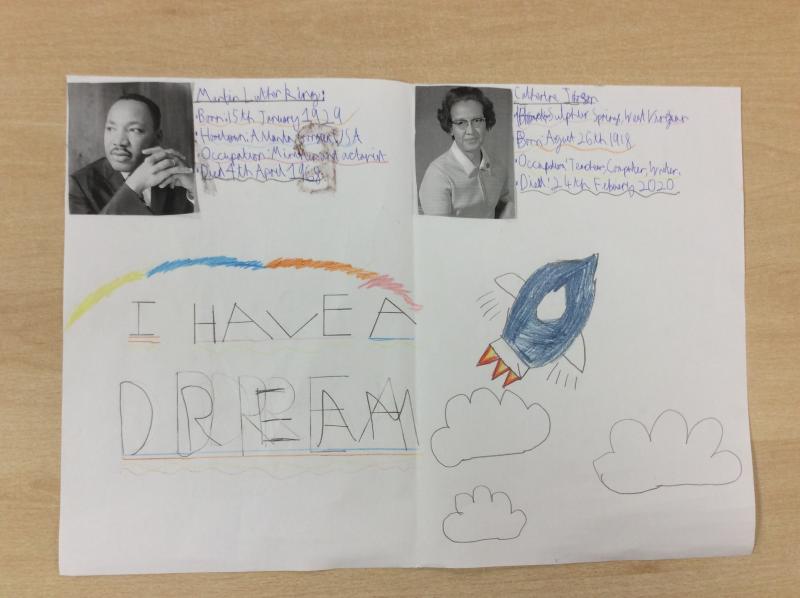 Martin Luther King:
Born: 15th January 1929
• Hometown: Atlanta, USA
• Occupation: Minister and activist
• Died 4th April 1968
I HAVE A
DREAM
Catherine
Sulphur Springs, West
Born: August 26th 1918
• Occupation: Teacher, Computer, Writer.
• Died: 24th February 2020